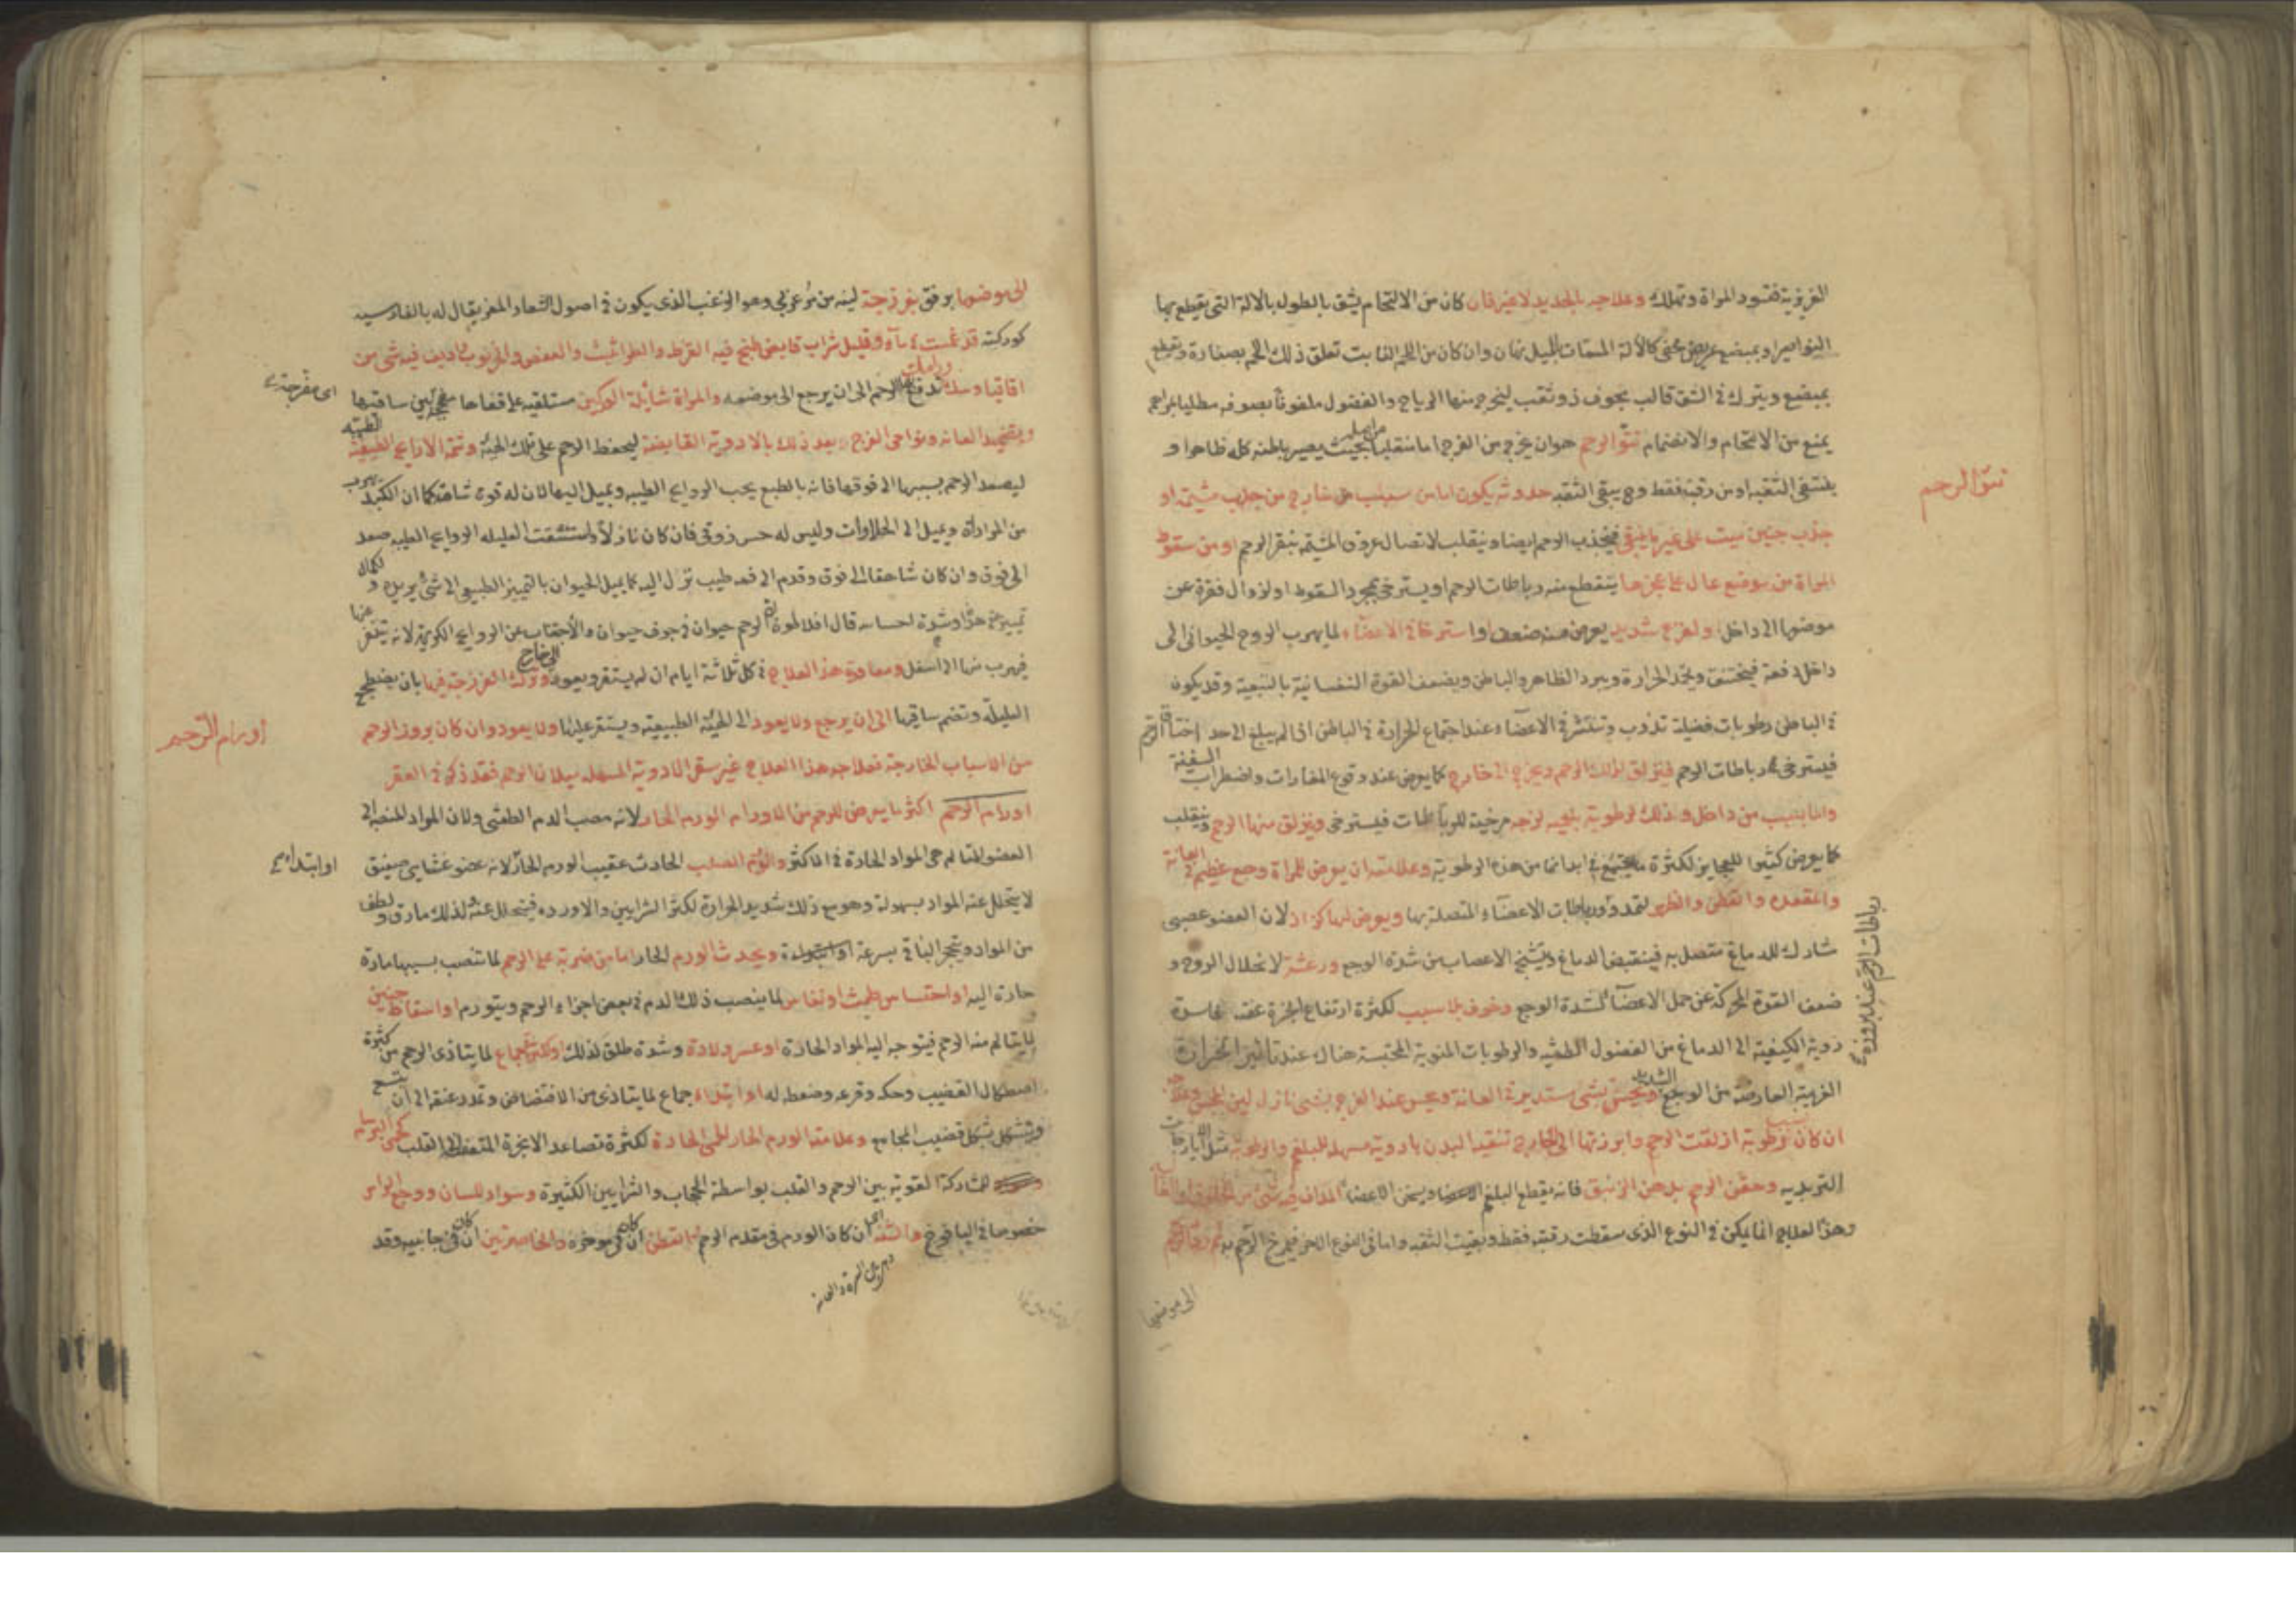 الغريزية فتسود المراة وتهلك وعلاجه بالحديد لا غير فان كان من الالتحام يشق بالطول بالالة التى يقطع بها
البواصير او بمبضع عريض مخفى كالالة المسمات بالميل وان كان من اللحم النابت تعلق ذلك اللحم بصنارة ويقطع
بمبضع ويترك فى الشق قالب مجوف ذو ثقب ليخرج منها الرياح والفضول ملفوفا بصوفه مطليا بمراهم
يمنع من الالتحام والانضمام نتو الرحم هو ان يخرج من الفرج اما منقلبا بحيث يصير باطنه كله ظاهرا و
ينتفى الثقبه او من رقبته فقط وح يبقى الثقبه حدوثه يكون اما من سبب من خارج من جذب مشيمة او
نتو الرحم
جذب جنين ميت على غير ما ينبغى فينجذب الرحم ايضا وينقلب لاتصال عروق المشيمة بنقر الرحم او من سقوط
المراة من موضع عال على عجزها يتقطع منه رباطات الرحم او يسترخى بمجرد السقوط او لزوال فقرة عن
موضعها الى داخل او لفزع شديد يعرض منه ضعف او استرخاء فى الاعضاء لما يهرب الروح الحيوانى الى
داخل دفعة فيختنق ويخمد الحرارة ويبرد الظاهر والباطن ويضعف القوة النفسانية بالتبعية وقد يكون
فى الباطن رطوبات فضيلة تذوب وتنتشر فى الاعضاء عند اجتماع الحرارة فى الباطن اذا لم يبلغ الى حد اختناق الرحم
فيسترخى رباطات الرحم فيزلق لذلك الرحم ويخرج الى خارج كما يعرض عند وقوع المغارات واضطراب السفينة
واما بسبب من داخل وذلك لرطوبة بلغمية لزجه مرخية للرباطات فيسترخى وينزلق منها الرحم وينقلب
كما يعرض كثيرا للعجايز لكثرة ما يجتمع فى ابدانها من هذه الرطوبة وعلامته ان يعرض للمراة وجع عظيم فى العانة
والمقعده والقطن والظهر لتمدد رباطات الاعضاء المتصلة بها ويعرض لها كزاز لان العضو عصبى
مشارك للدماغ متصل به فينقبض الدماغ ويتشنج الاعصاب من شدة الوجع ورعشة لانحلال الروح و
ضعف القوة المحركة عن حمل الاعضاء لشدة الوجع وخوف بلا سبب لكثرة ارتفاع ابخرة عفنه فاسدة
ردية الكيفية الى الدماغ من الفضول الطمثيه والرطوبات المنوية المحتبسة هناك عند تاثير الحرارة
رباطات الرحم عند بروزه
الغريبة العارضة من الوجع الشديد ويحس بشى مستدير فى العانة ويحس عند الفرج بشى نازل لين المجس وعلاجه
ان كان بسبب رطوبة ازلقت الرحم وابرزتها الى الخارج تنقية البدن بادوية مسهله للبلغم والرطوبة مثل الايارجات
التربديه وحقن الرحم بدهن الزنبق فانه يقطع البلغم ويسخن الاعضاء المداف فيه شى من
وهذا العلاج انما يمكن فى النوع الذى سقطت رقبته فقط وبقيت الثقبه واما فى النوع الاخر فيمرخ الرحم به
الى موضعها
الى موضعها برفق بفرزجة لينه من مرعزى وهو الزغب الذى يكون فى اصول الشعار المعز يقال له بالفارسيه
كورك قد غمست فى ماء وقليل شراب قابض طبخ فيه القرظ والطراثيث والعفص والخرنوب ويداف فيه شى من
اقاقيا ورامك وسك تدفع به الرحم الى ان يرجع الى موضعه والمراة شايلة الوركين مستلقيه على قفاها مفحجة بين ساقيها
اى مفرجة
ويضمد العانه ونواحى الفرج بعد ذلك بالادوية القابضة ليحفظ الرحم على تلك الهيئة وتشم الارايح الطيبة
ليصعد الرحم بسببها الى فوقها فانه بالطبع يحب الروايح الطيبه ويميل اليها لان له قوة شامة كما ان الكبد يهرب
من المرارات ويميل الى الحلاوات وليس له حس ذوقى فان كان نازلا واستنشقت العليله الروايح الطيبه صعد
الى فوق وان كان شاهقا الى فوق وقدم الى فمه طيب نزل اليه كما يميل الحيوان بالتمييز الطبيعى الى شى يريده و لكمال
تمييزه هذا وشدة احساسه قال افلاطون ان الرحم حيوان فى جوف حيوان والاجتناب عن الروايح الكريهة لانه يتنفر عنها
فيهرب منها الى اسفل ومعاودة هذا العلاج فى كل ثلاثة ايام ان لم يستقر ويعود الى خارج وترك الفرزجة فيها بان يضطجع
العليلة وتضم ساقيها الى ان يرجع ولا يعود الى الهيئة الطبيعية ويستقر عليها ولا يعود وان كان بروز الرحم
من الاسباب الخارجة فعلاجه هذا العلاج غير سقى الادوية المسهله ميلان الرحم فقد ذكر فى العقر
اورام الرحم
اورام الرحم اكثر ما يعرض للرحم من الاورام الورم الحار لانه مصب الدم الطمثى ولان المواد المنصبه الى
العضو المتالم هى المواد الحادة فى الاكثر والورم الصلب الحادث عقيب الورم الحار لانه عضو غشايى صفيق
او ابتداء
لا يتحلل عنه المواد بسهولة وهو مع ذلك شديد الحرارة لكثرة الشرايين والاوردة فيتحلل عنه لذلك ما رق ولطف
من المواد ويتحجر الباقى بسرعة ويحدث الورم الحار اما من ضربة على الرحم لما تنصب بسببها مادة
حارة اليه او احتباس طمث او نفاس لما ينصب ذلك الدم فى بعض اجزاء الرحم ويتورم او اسقاط جنين
لما يتالم منه الرحم فيتوجه اليه المواد الحادة او عسر ولادة وشدة طلق لذلك او كثرة جماع لما يتاذى الرحم من كثرة
اصطكاك القضيب وحكه وقرعه وضغطه له او ابتداء جماع لما يتاذى من الافتضاض وتمدد عنقه الى ان يتسع
ويتشكل بشكل قضيب المجامع وعلامة الورم الحار الحمى الحادة لكثرة تصاعد الابخرة المتعفنه الى القلب
للمشاركة القوية بين الرحم والقلب بواسطة الحجاب والشرايين الكثيرة وسواد اللسان ووجع الراس
خصوصا فى اليافوخ والثنة ان كان الورم فى مقدم الرحم او القطن ان كان فى موخره والخاصرتين ان كان فى جانبيه وقد